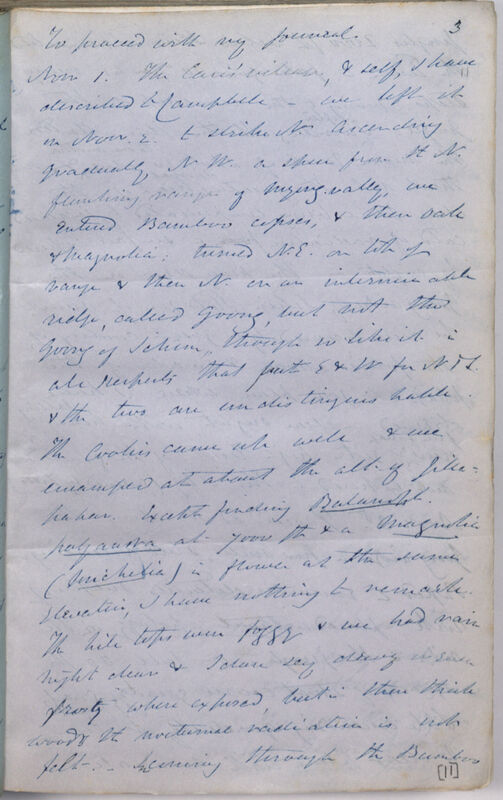 3
To proceed with my Journal.
Nov 1. The & self, I have
described to Campbell – we left it
on Novr. 2. to strike N. Ascending
gradually, N.W. a spur from the N.
flanking range of valley, we
entered Bamboo copses, & then oak
& Magnolia: turned N.E. on top of
range & then N. on an interminable
ridge, called Goong, but not the
Goong of Sikkim, though so like it in
all respects that part E & W for N & S.
& the two are undistinguishable.
The Coolies came up well & we
encamped at about the alt. of Jilla-
pahar. Except finding Balanoph.
at 7000 ft & a Magnolia
(Michelia) in flower at the same
Elevation, I have nothing to remark.
The hill tops were foggy & we had rain
night clear & I dare say
frosty where exposed, but in these thick
woods the nocturnal radiation is not
felt. – through the Bamboo
[11]